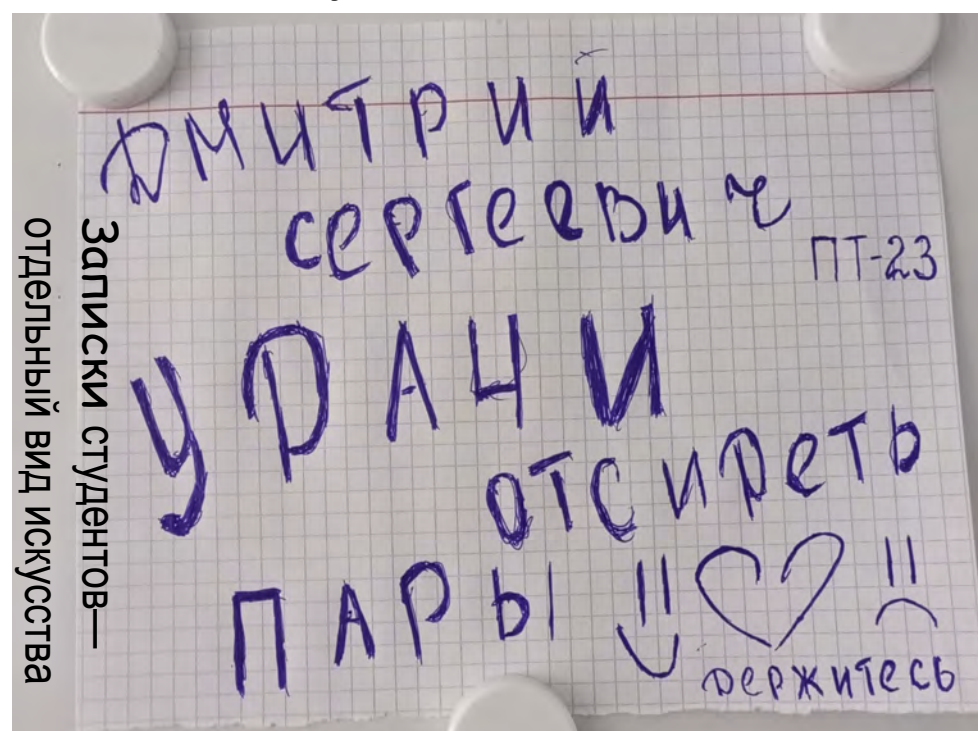 Дмитрий
Сергеевич
ПТ-23
УРАЧИ
отсиреть
ПАРЫ
держитесь
Записки студентов—
отдельный вид искусства